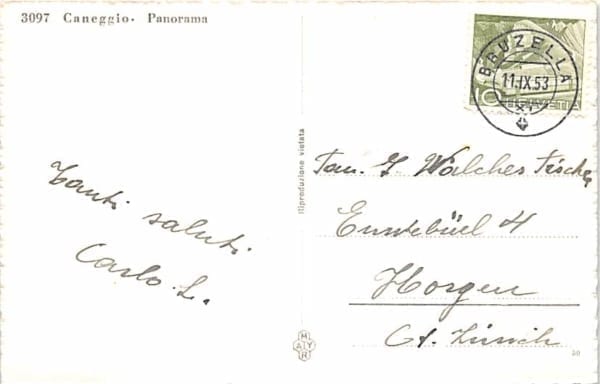 3097 Caneggio. Panorama
BRUZELLA
11.IX.53
XII
10 HELVETIA
Tanti saluti
Carlo L.
Riproduzione vietata
Fam. J. Walches Fischer
4
Horgen
Ct. Zürich
MAYR
30